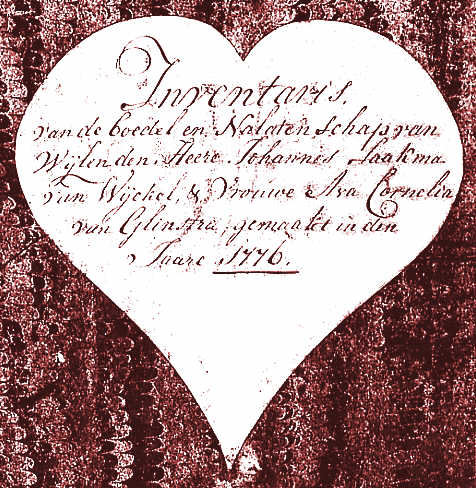 Inventaris.
van de boedel en Nalatenschap van
Wijlen den Heere Johannes Saakma
van Wyckel, & Vrouwe Ava Cornelia
van Glinstra, gemaakt in den
Jaare 1776.